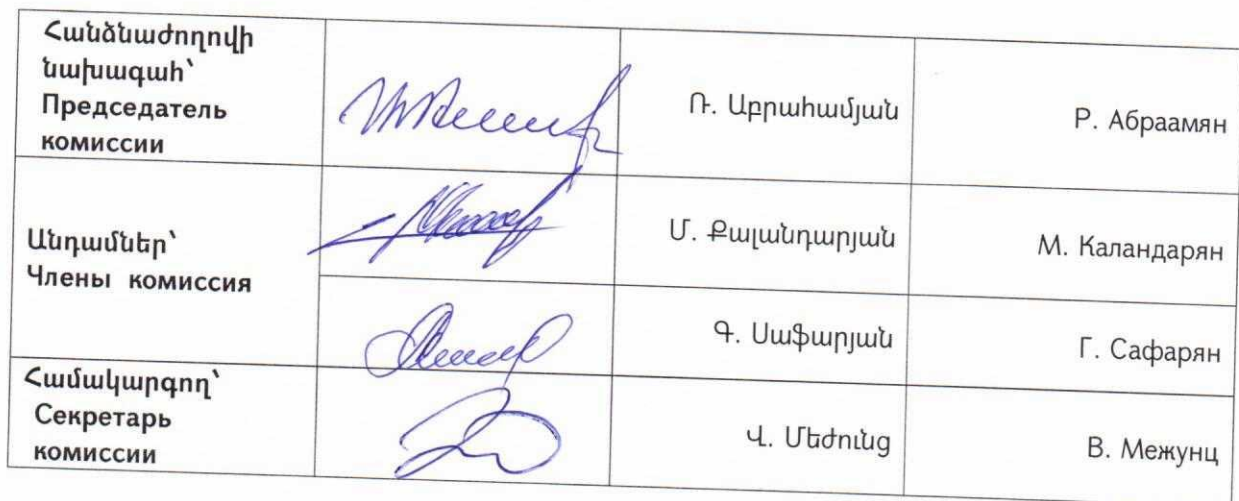 Հանձնաժողովի
նախագահ՝
Председатель
комиссии
Ռ. Աբրահամյան
Р. Абраамян
Անդամներ՝
Члены комиссия
Մ. Քալանդարյան
М. Каландарян
Գ. Սաֆարյան
Г. Сафарян
Համակարգող՝
Секретарь
комиссии
Վ. Մեժունց
В. Межунц